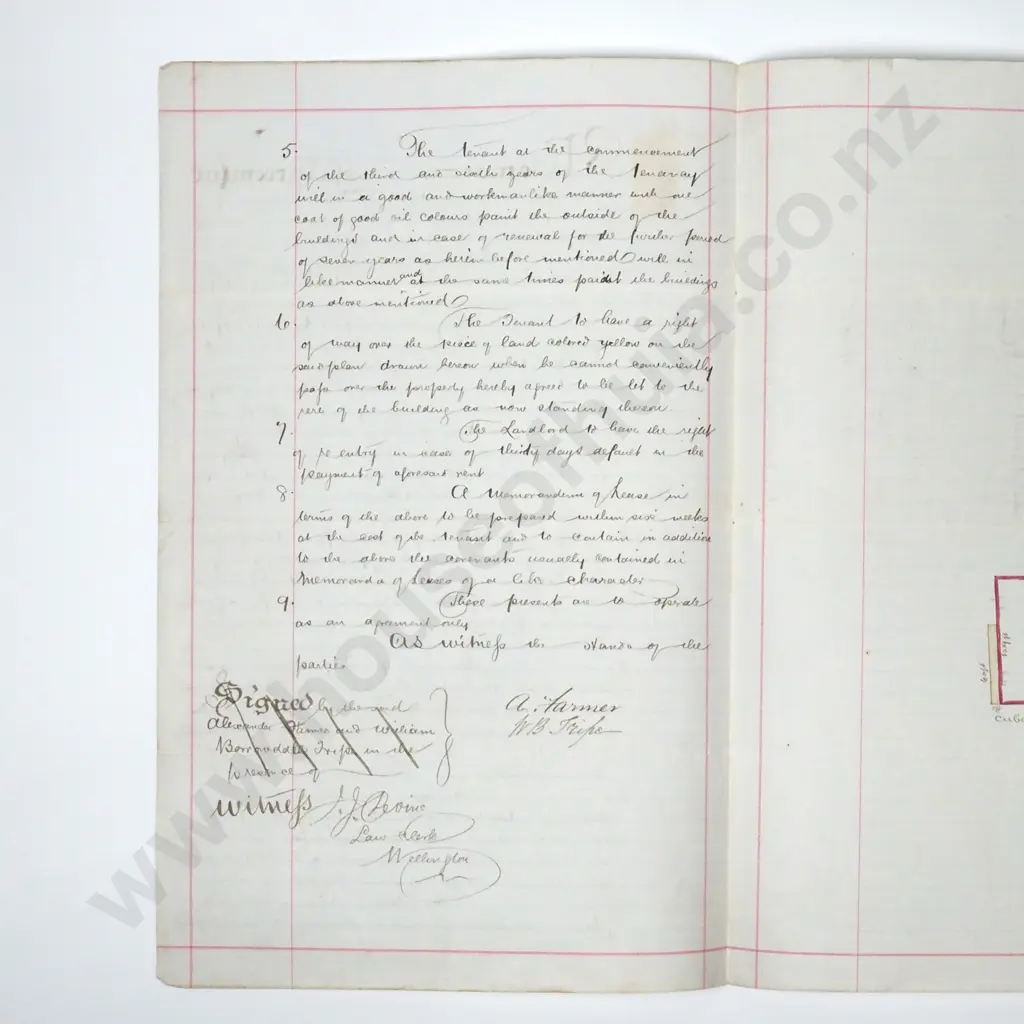 5. The tenant at the commencement
of the third and sixth years of the tenancy
will in a good and workmanlike manner with one
coat of good oil colours paint the outside of the
buildings and in case of renewal for the further period
of seven years as herein before mentioned will in
like manner and at the same times paint the buildings
as above mentioned
6. The Tenant to have a right
of way over the piece of land colored yellow on the
said plan drawn hereon when he cannot conveniently
pass over the property hereby agreed to be let to the
rere of the building as now standing thereon.
7. The Landlord to have the right
of re entry in case of thirty days default in the
payment of aforesaid rent
8. A Memorandum of Lease in
terms of the above to be prepared within six weeks
at the cost of the tenant and to contain in addition
to the above the covenants usually contained in
Memoranda of Leases of a like character
9. These presents are to operate
as an agrement only
As witness the Hands of the
parties
Signed by the said
Alexander Farmer and William
Borrowdale Tripe in the
presence of
A. Farmer
W B Tripe
Witness J. J. Devine
Law Clerk
Wellington
www.houseofhuia.co.nz